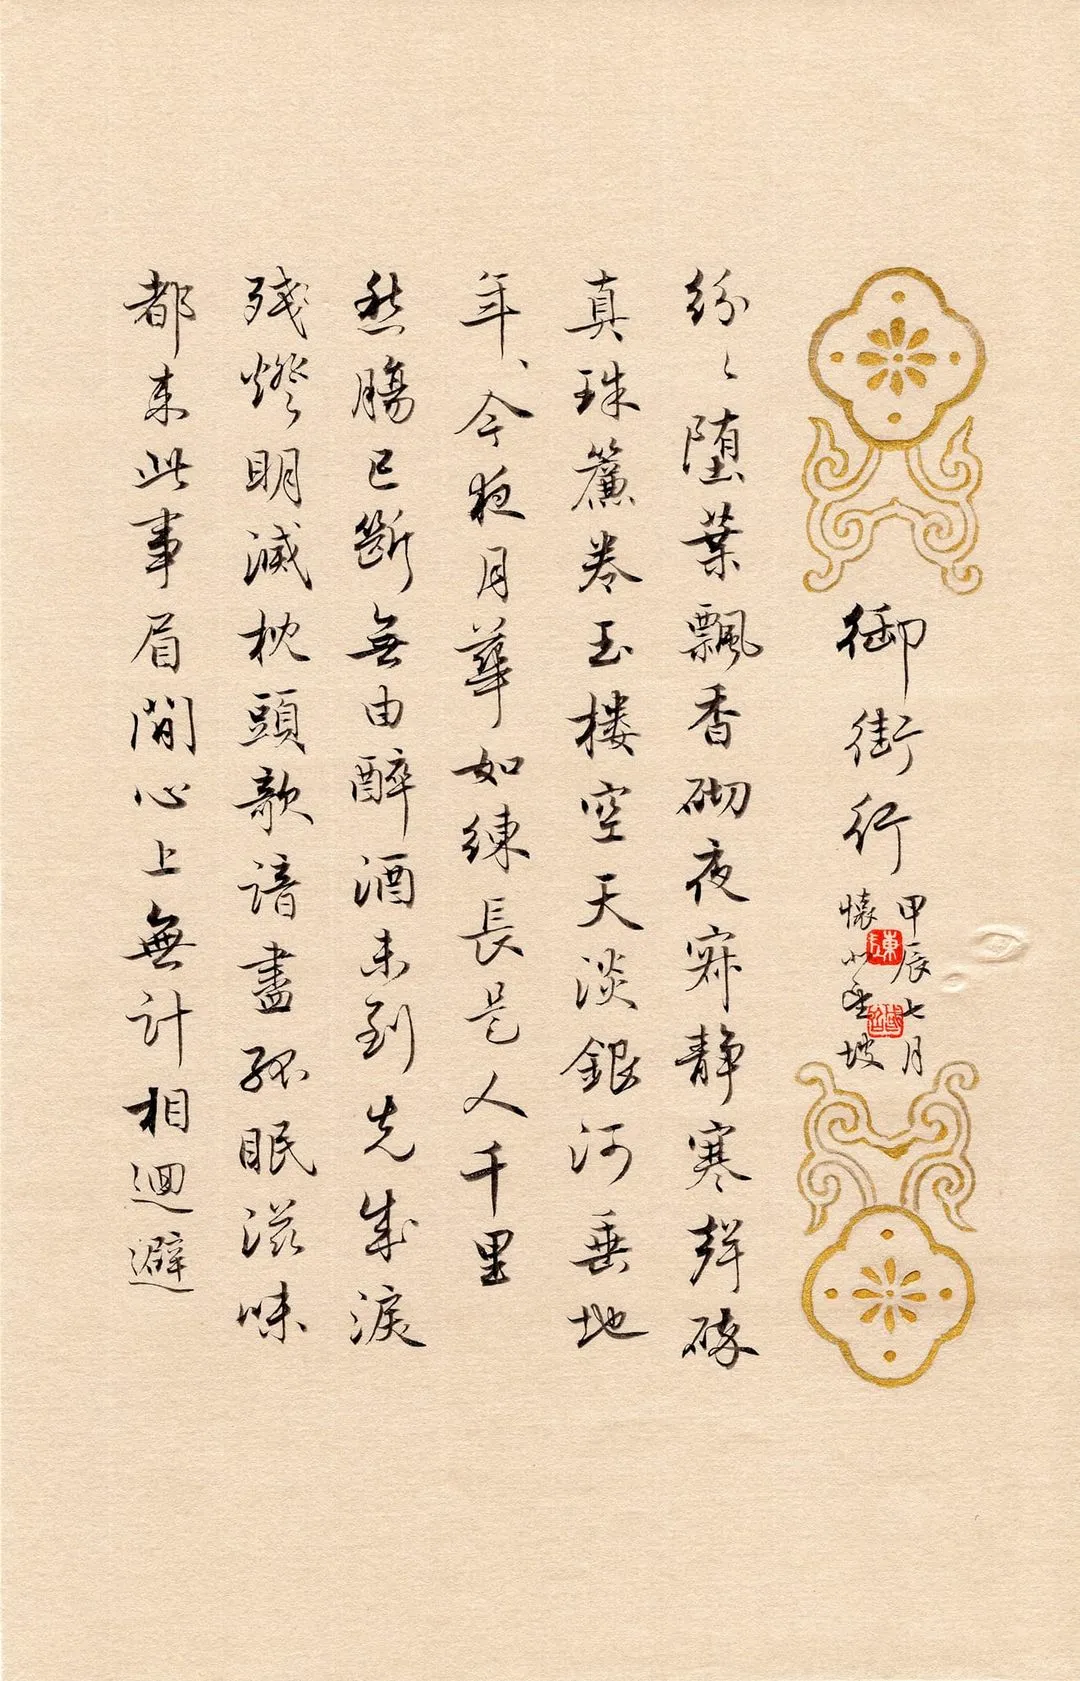 御街行
甲辰七月
懷坡
紛〻墮葉飄香砌夜寂靜寒聲碎
真珠簾卷玉楼空天淡銀河垂地
年、今夜月華如練長是人千里
愁腸已斷無由醉酒未到先成淚
殘燈明滅枕頭欹諳盡孤眠滋味
都来此事眉間心上無計相迴避